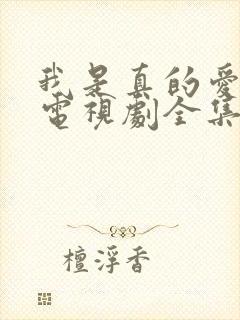 我是真的愛
電視劇全集
檀浮香